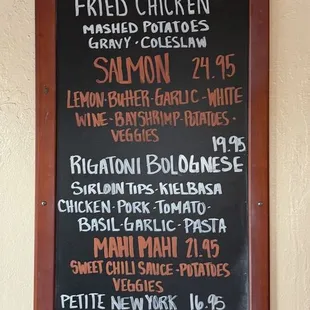 FRIED CHICKEN
MASHED POTATOES
GRAVY · COLESLAW
SALMON 24.95
LEMON-BUTTER-GARLIC-WHITE
WINE-BAYSHRIMP-POTATOES-
VEGGIES
19.95
RIGATONI BOLOGNESE
SIRLOIN TIPS-KIELBASA
CHICKEN-PORK-TOMATO-
BASIL-GARLIC-PASTA
MAHI MAHI 21.95
SWEET CHILI SAUCE-POTATOES
VEGGIES
PETITE NEW YORK 16.95